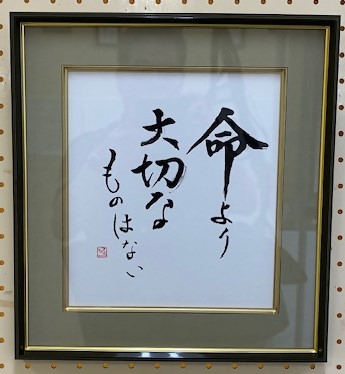 命より
大切な
ものはない